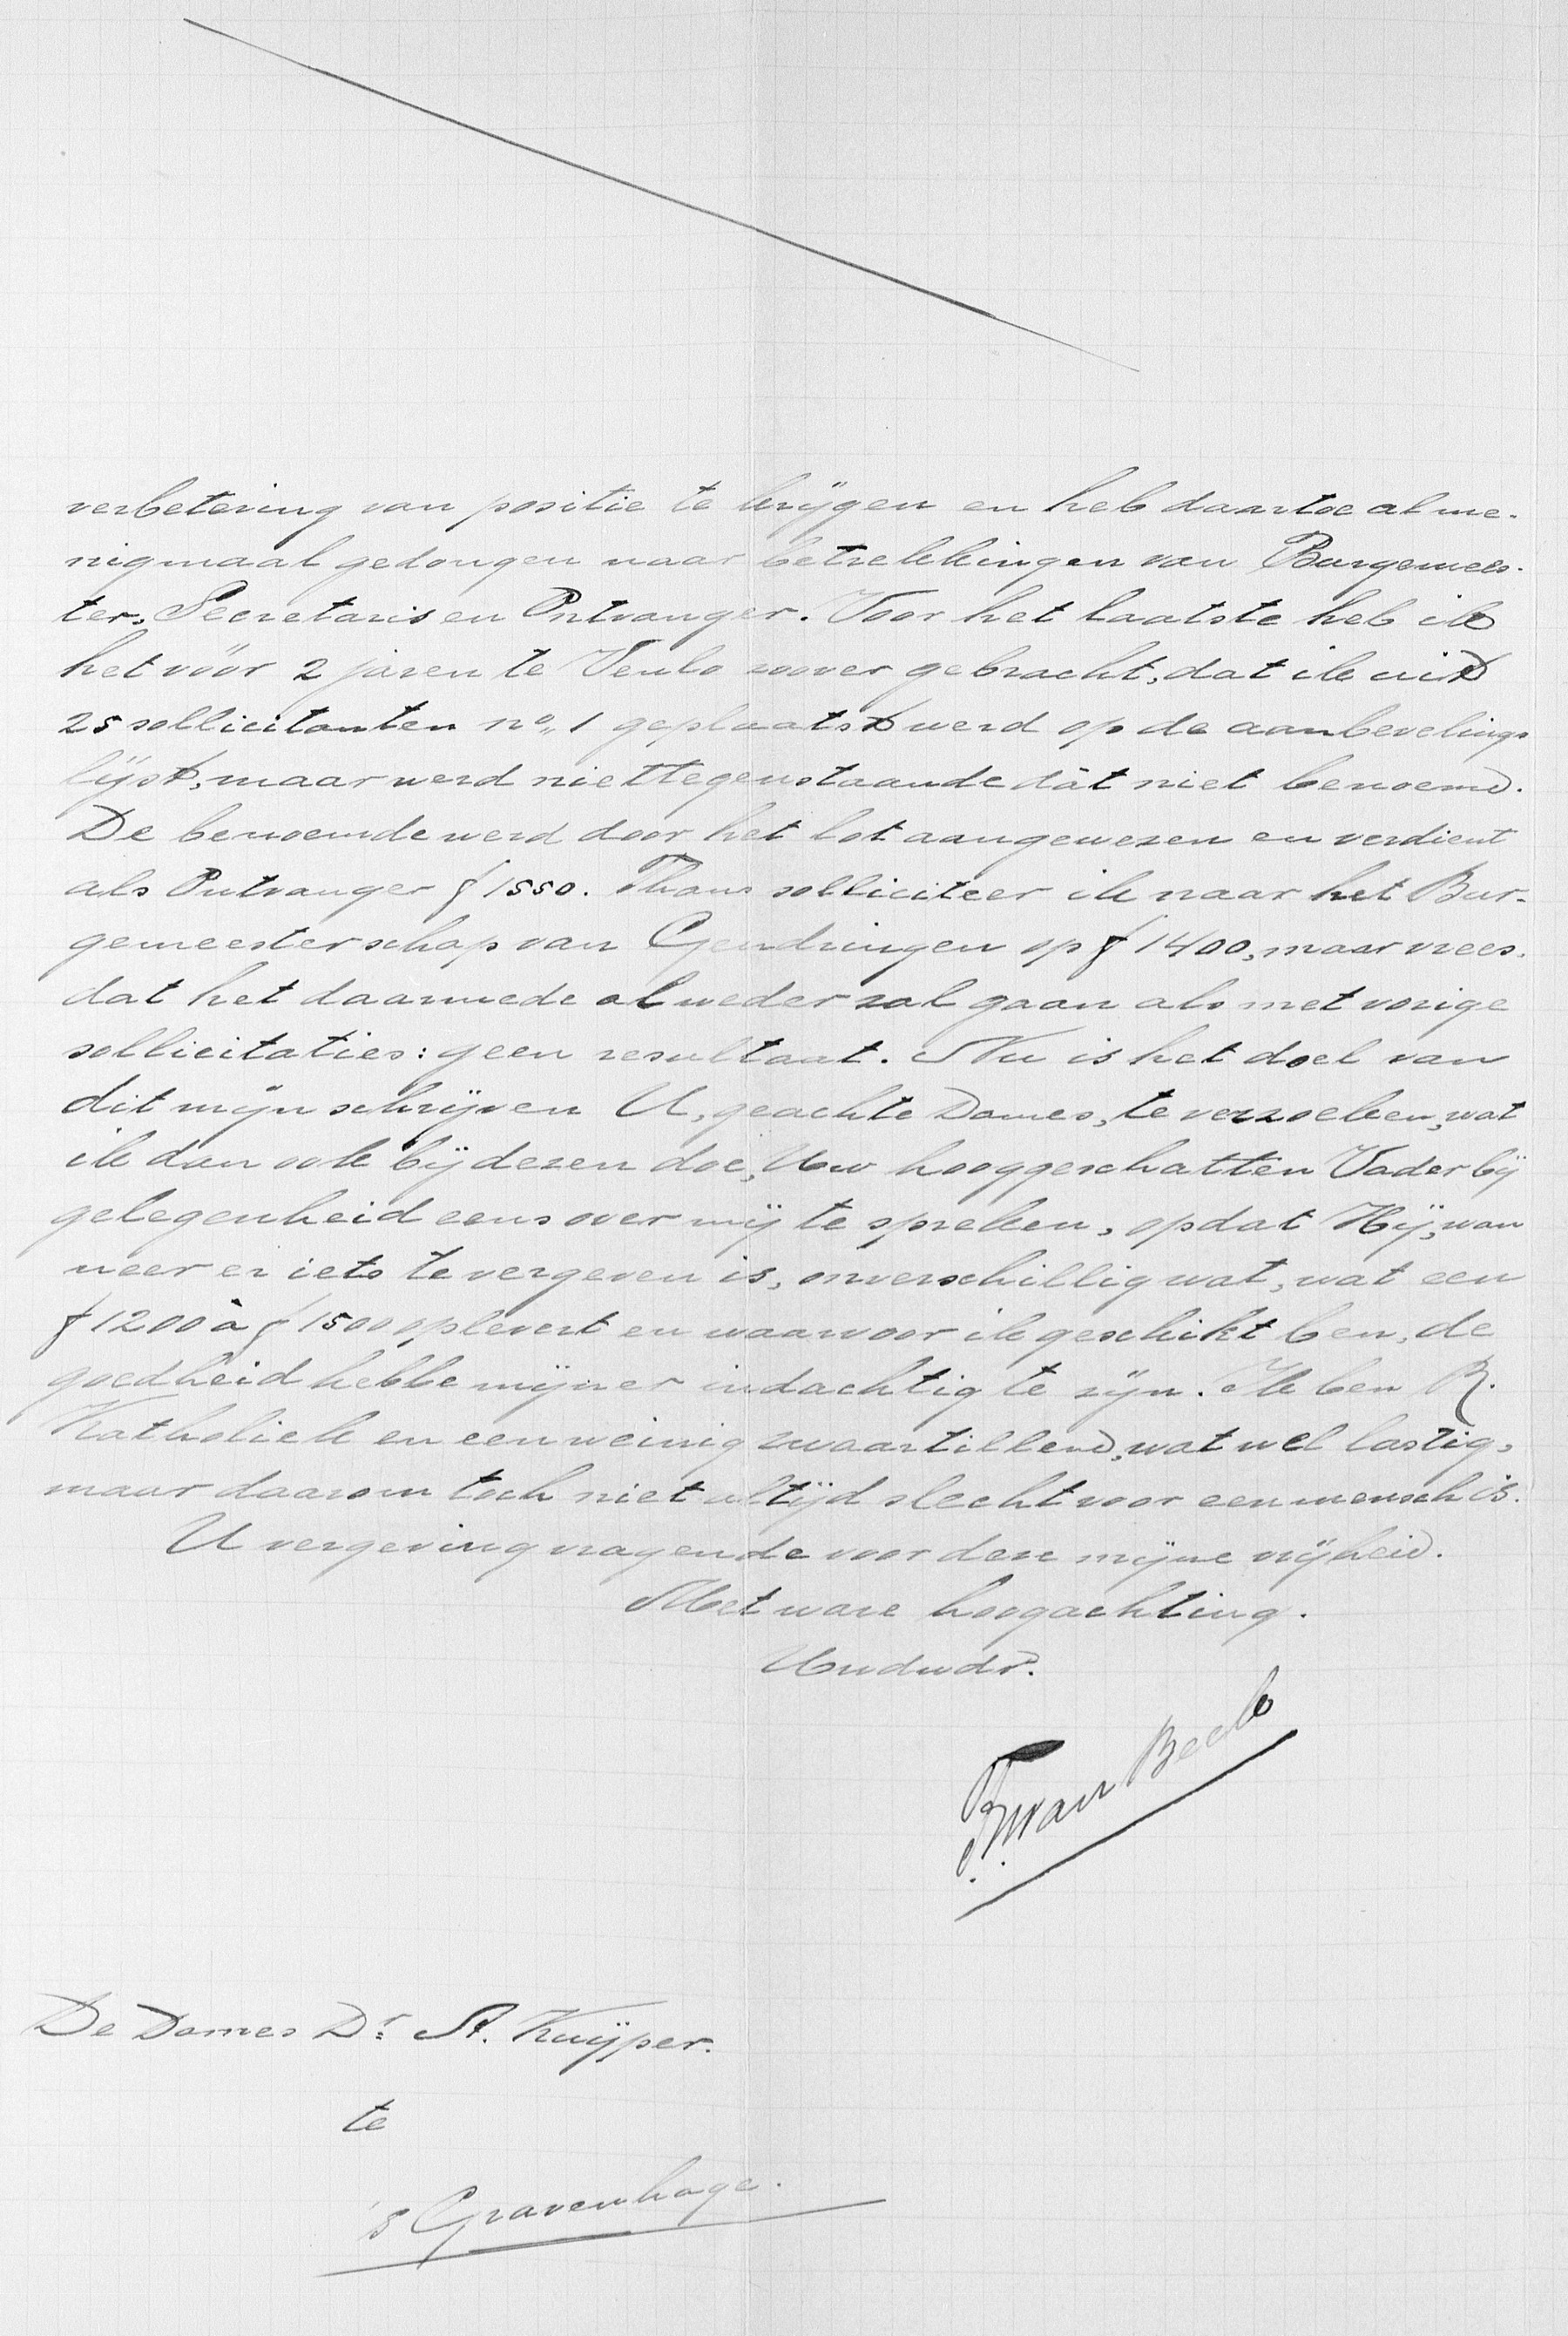 verbetering van positie te krijgen en heb daartoe al me-
nigmaal gedongen naar betrekkingen van Burgemees-
ter, Secretaris en Ontvanger. Voor het laatste heb ik
het vóór 2 jaren te Venlo zoover gebracht, dat ik uit
25 sollicitanten no. 1 geplaatst werd op de aanbevelings
lijst, maar werd niettegenstaande dàt niet benoemd.
De benoemde werd door het lot aangewezen en verdient
als Ontvanger f 1550. Thans solliciteer ik naar het Bur-
gemeesterschap van Gendringen op f 1400, maar vrees,
dat het daarmede alweder zal gaan als met vorige
sollicitaties: geen resultaat. Nu is het doel van
dit mijn schrijven U, geachte Dames, te verzoeken, wat
ik dan ook bij dezen doe, Uw hooggeschatten Vader bij
gelegenheid eens over mij te spreken, opdat Hij, wan
neer er iets te vergeven is, onverschillig wat, wat een
f 1200 à f 1500 oplevert en waarvoor ik geschikt ben, de
goedheid hebbe mijner indachtig te zijn. Ik ben R.
Katholiek en een weinig zwaartillend, wat wel lastig,
maar daarom toch niet altijd slecht voor een mensch is.
U vergeving vragende voor deze mijne vrijheid.
Met ware hoogachting.
Uwdwdr.
van Beek
De Dames Dr. A. Kuijper.
te
's Gravenhage.